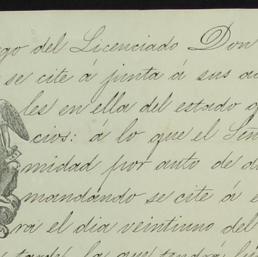 go del Licenciado Don
se cite á junta á sus
les en ella del estado
cios: á lo que el
midad por auto de
mandando se cite á
rá el dia veintiuno del
tarde, la que tendrá